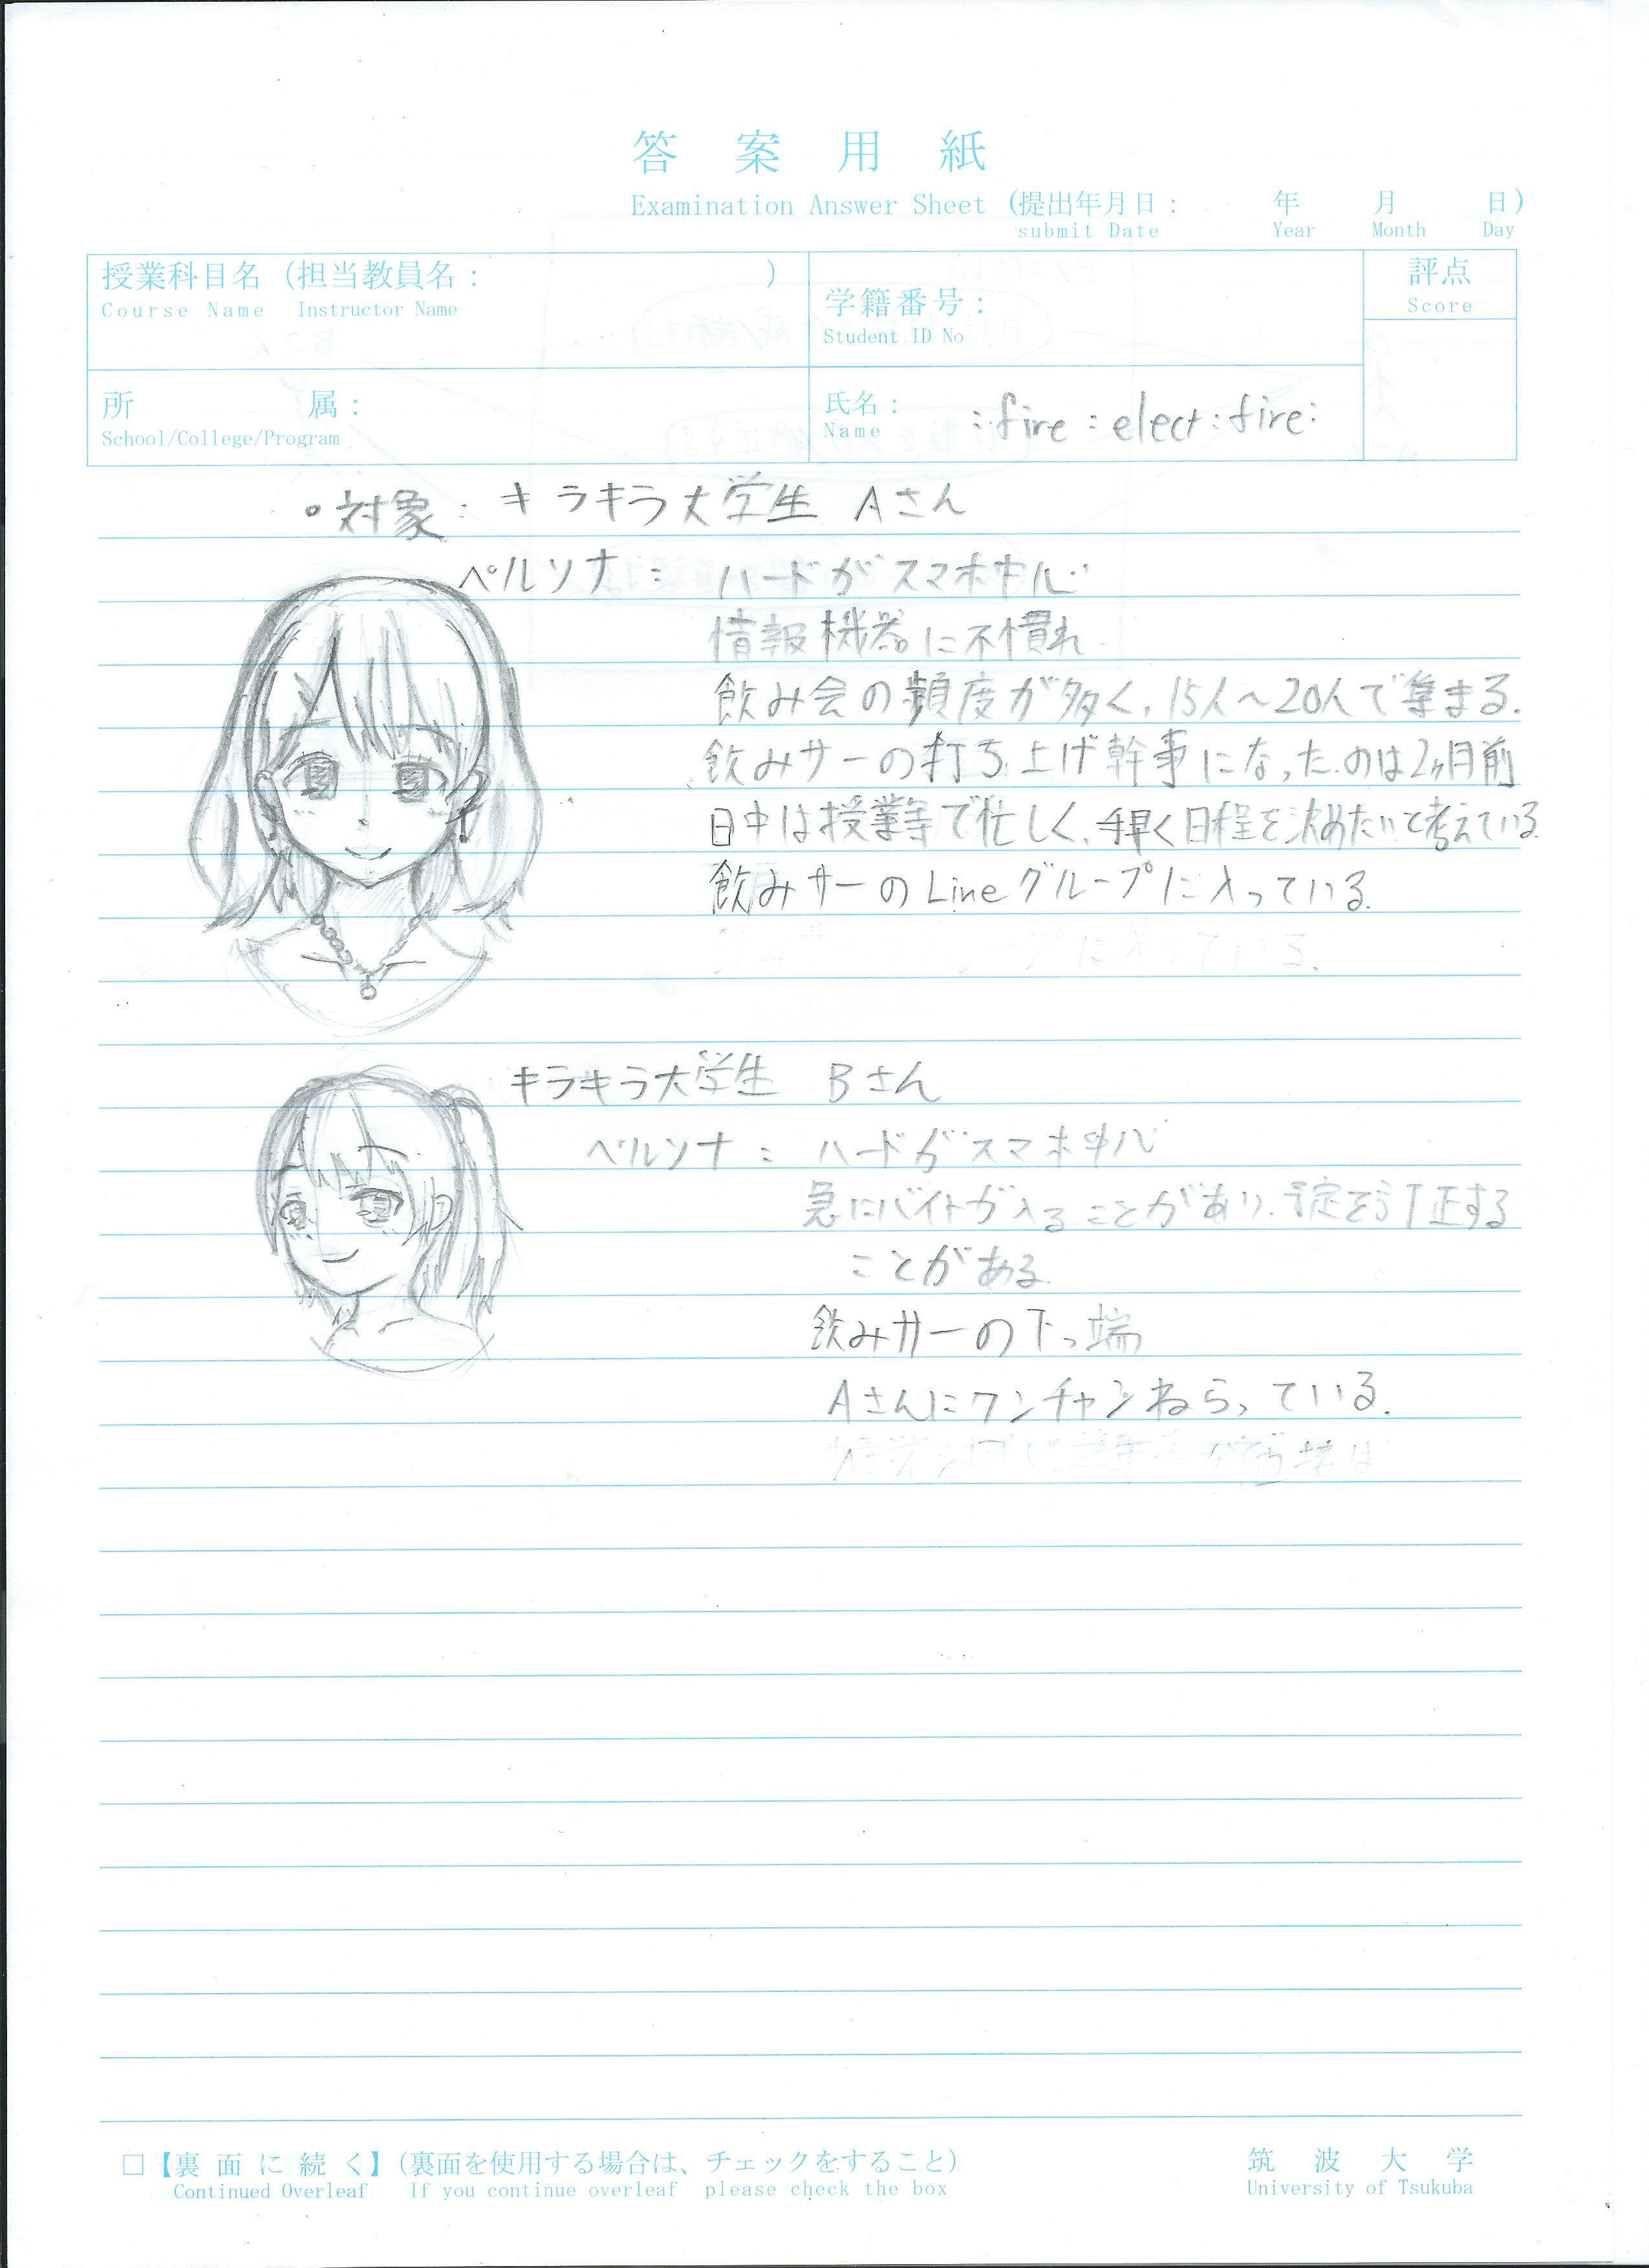 答案用紙
Examination Answer Sheet (提出年月日: 年 月 日)
submit Date Year Month Day
授業科目名 (担当教員名: )
Course Name Instructor Name
学籍番号:
Student ID No
評点
Score
所属:
School/College/Program
氏名:
Name
:fire:elect:fire:
。対象: キラキラ大学生 Aさん
ペルソナ: ハードがスマホ中心
情報機器に不慣れ
飲み会の頻度が多く、15人〜20人で集まる.
飲みサーの打ち上げ幹事になったのは2ヶ月前
日中は授業等で忙しく、手早く日程を決めたいと考えている.
飲みサーのLineグループに入っている.
キラキラ大学生 Bさん
ペルソナ: ハードがスマホ中心
急にバイトが入ることがあり、予定を訂正する
ことがある.
飲みサーの下っ端
Aさんにワンチャンねらっている.
□【裏面に続く】(裏面を使用する場合は、チェックをすること)
Continued Overleaf If you continue overleaf please check the box
筑波大学
University of Tsukuba